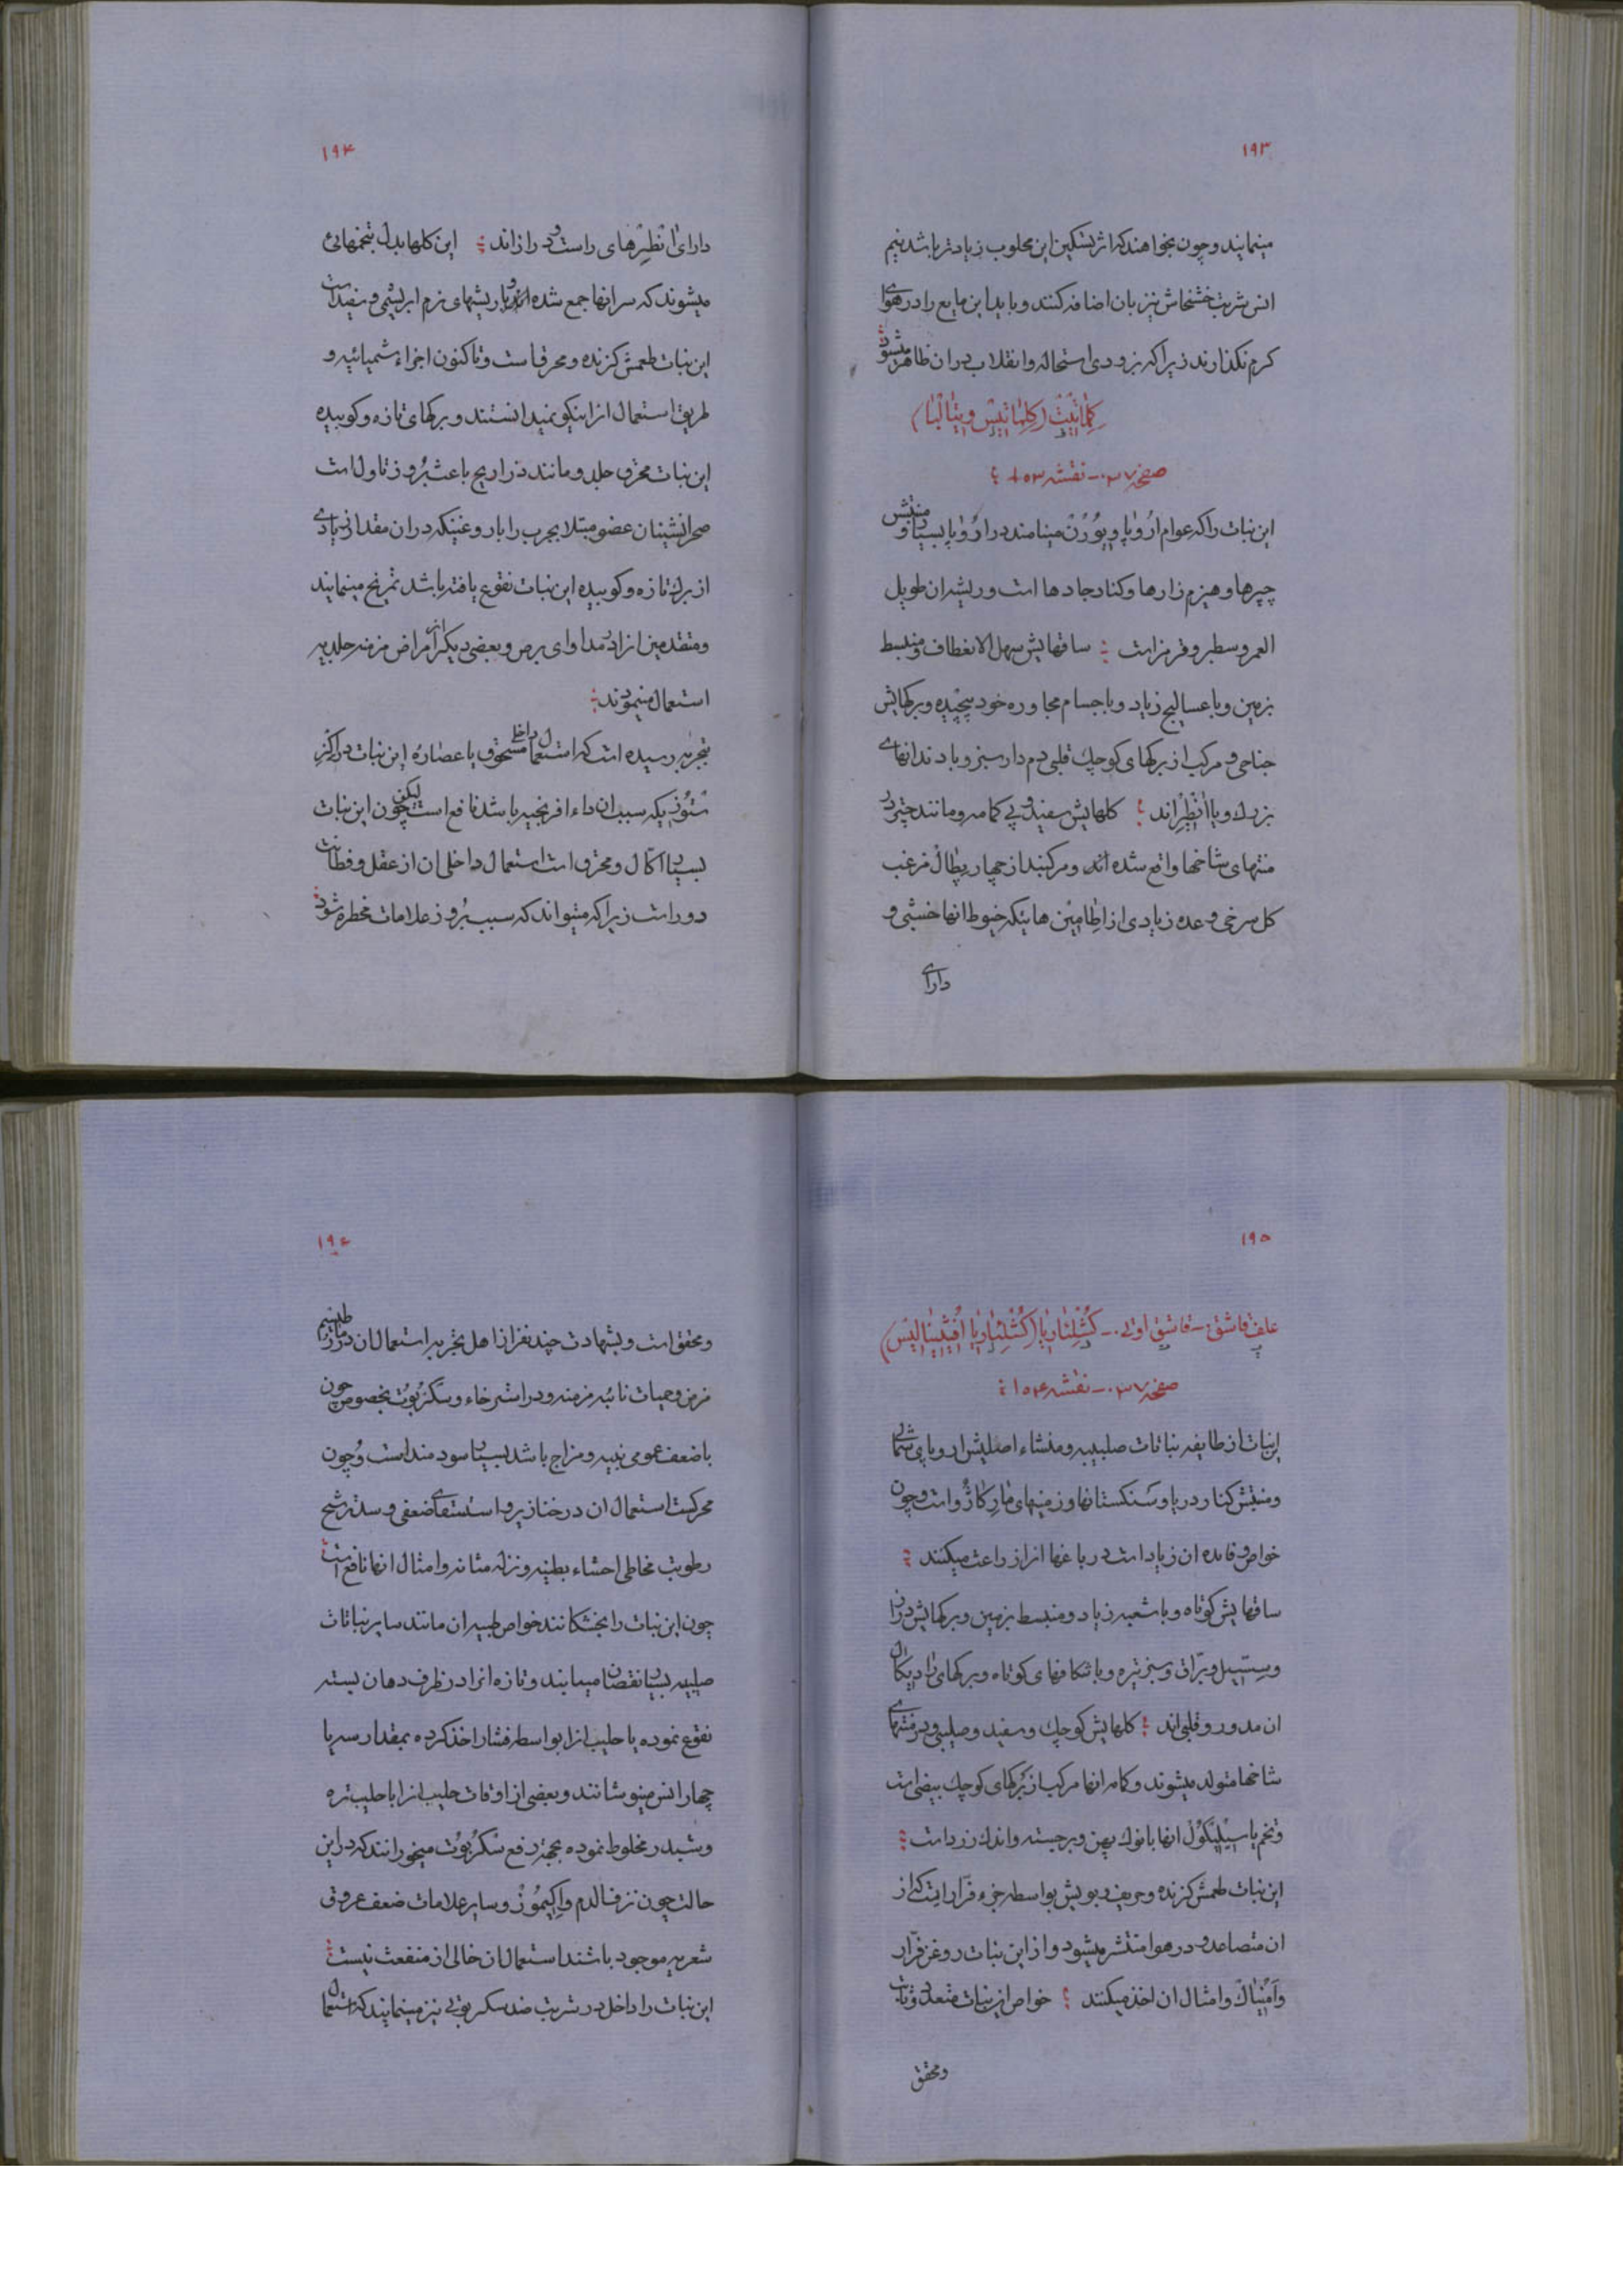 ۱۹۳
مینمایند و چون بخواهند که اثر تسکین این محلوب زیادتر باشد نیم
انس شربت خشخاش نیز بان اضافه کنند و باید این مایع را در هوای
کرم نکذارند زیرا که بزودی استحاله و انقلاب در ان ظاهر میشود
کِلِمٰاتیٖتْ (کِلِمٰاتیٖسْ ویٖتٰالْبٰا)
صفحه ۳۷ ــ نقشه ۱۵۳
این نباترا که عوام اُرُوپا ویُوُرْنْ مینامند در اُرُوپا بسیار و منبتش
چپرها و هیزم زارها و کنار جادها است و ریشه ان طویل
العمر و سطبر و قرمز است ساقهایش سهل الانعطاف و منبسط
بزمین و با عسالیج زیاد و باجسام مجاوره خود پیچیده و برکهایش
جناحی و مرکب از برکهای کوچك قلبی دم دار سبز و با دندانهای
بزرك و یا اَنْطِیِرْاند کلهایش سفید و بی کمامه و مانند چتر در
منتهای شاخها واقع شده اند و مرکبند از چهار پِطٰالْ مزغب
کل سرخی و عده زیادی از اِطٰامیٖنْ هائیکه خیوط انها خنثی و
دارای
۱۹۴
دارای اَنْطِیِرْهای راست و درازاند این کلها بدل بتخمهائی
میشوند که سر انها جمع شده اند و با ریشهای نرم ابریشمی و سفیداست
این نبات طعمش کزنده و محرق است و تاکنون اجزاء شمیائیه و
طریق استعمال انرا نیکو نمیدانستند و برکهای تازه و کوبیده
این نبات محرق جلد و مانند ذراریح باعث بُروز تاول است
صحرانشینان عضو مبتلا بجرب را با روغنیکه در ان مقدار زیادی
از برك تازه و کوبیده این نبات نقوع یافته باشد تمریخ مینمایند
و متقدمین انرا در مداوای برص و بعضی دیکر از امراض مزمنه جلدیه
استعمال مینمودند
بتجربه رسیده است که استعمال داخلی مسحوق یا عصاره این نبات در اکْزُ
سْتُوزیکه سبب ان داء افرنجیه باشد نافع است لیکن چون این نبات
بسیار اکّال و محرق است استعمال داخلی ان از عقل و فطانت
دور است زیرا که میتواند که سبب بُروز علامات مخطره شود
۱۹۵
علف قاشق ــ قاشق اوتی ــ کُشْلِئارْیٰا (کُشْلِئارْیٰا اُفیٖثیٖنٰالیٖسْ)
صفحه ۳۷ ــ نقشه ۱۵۴
این نبات از طایفه نباتات صلیبیه و منشاء اصلیش اروپای شمالی
و منبتش کنار دریا و سنکستانها و زمینهای مٰارِکٰاژُ و است و چون
خواص و فایده ان زیاد است در باغها انرا زراعت میکنند
ساقهایش کوتاه و با شعبه زیاد و منبسط بزمین و برکهایش دراز
و سِسّیٖل و برّاق و سبز تیره و با شکافهای کوتاه و برکهای رٰادیٖکٰالْ
ان مدور و قلبی اند کلهایش کوچك و سفید و صلیبی و در منتهای
شاخها متولد میشوند و کاسه انها مرکب از برکهای کوچك بیضی است
و تخم یا سیٖلیٖکُولْ انها با نوك پهن و برجسته و اندك زرد است
این نبات طعمش کزنده و حریف و بویش بواسطه جزء فرّاریست که از
ان متصاعد و در هوا منتشر میشود و از این نبات روغن فرّار
و اَمُنیٰاكْ و امثال ان اخذ میکنند خواص این نبات متعدد و ثابت
و محقق
۱۹۶
و محقق است و بشهادت چند نفر از اهل تجربه استعمال ان در رماتیسم
مزمن و حمیات نائبه مزمنه و در استرخاء و سکُرْبُوتْ بخصوص چون
با ضعف عمومی بنیه و مزاج باشد بسیار سودمند است و چون
محرکست استعمال ان در خنازیر و استسقای ضعفی و سده ترشح
رطوبت مخاطی احشاء بطنیه و نزله مثانه و امثال انها نافع است
چون این نبات را بخشکانند خواص طبیه ان مانند سایر نباتات
صلیبیه بسیار نقصان مییابند و تازه انرا در ظرف دهان بسته
نقوع نموده یا حلیب انرا بواسطه فشار اخذ کرده بمقدار سه یا
چهار انس مینوشانند و بعضی از اوقات حلیب انرا با حلیب تره
و شبدر مخلوط نموده بجهة رفع سکُرْبُوتْ میخورانند که در این
حالت چون نزف الدم و اِکیٖمُوزْ و سایر علامات ضعف عروق
شعریه موجود باشند استعمال ان خالی از منفعت نیست
این نبات را داخل در شربت ضد سکربوتی نیز مینمایند که استعمال